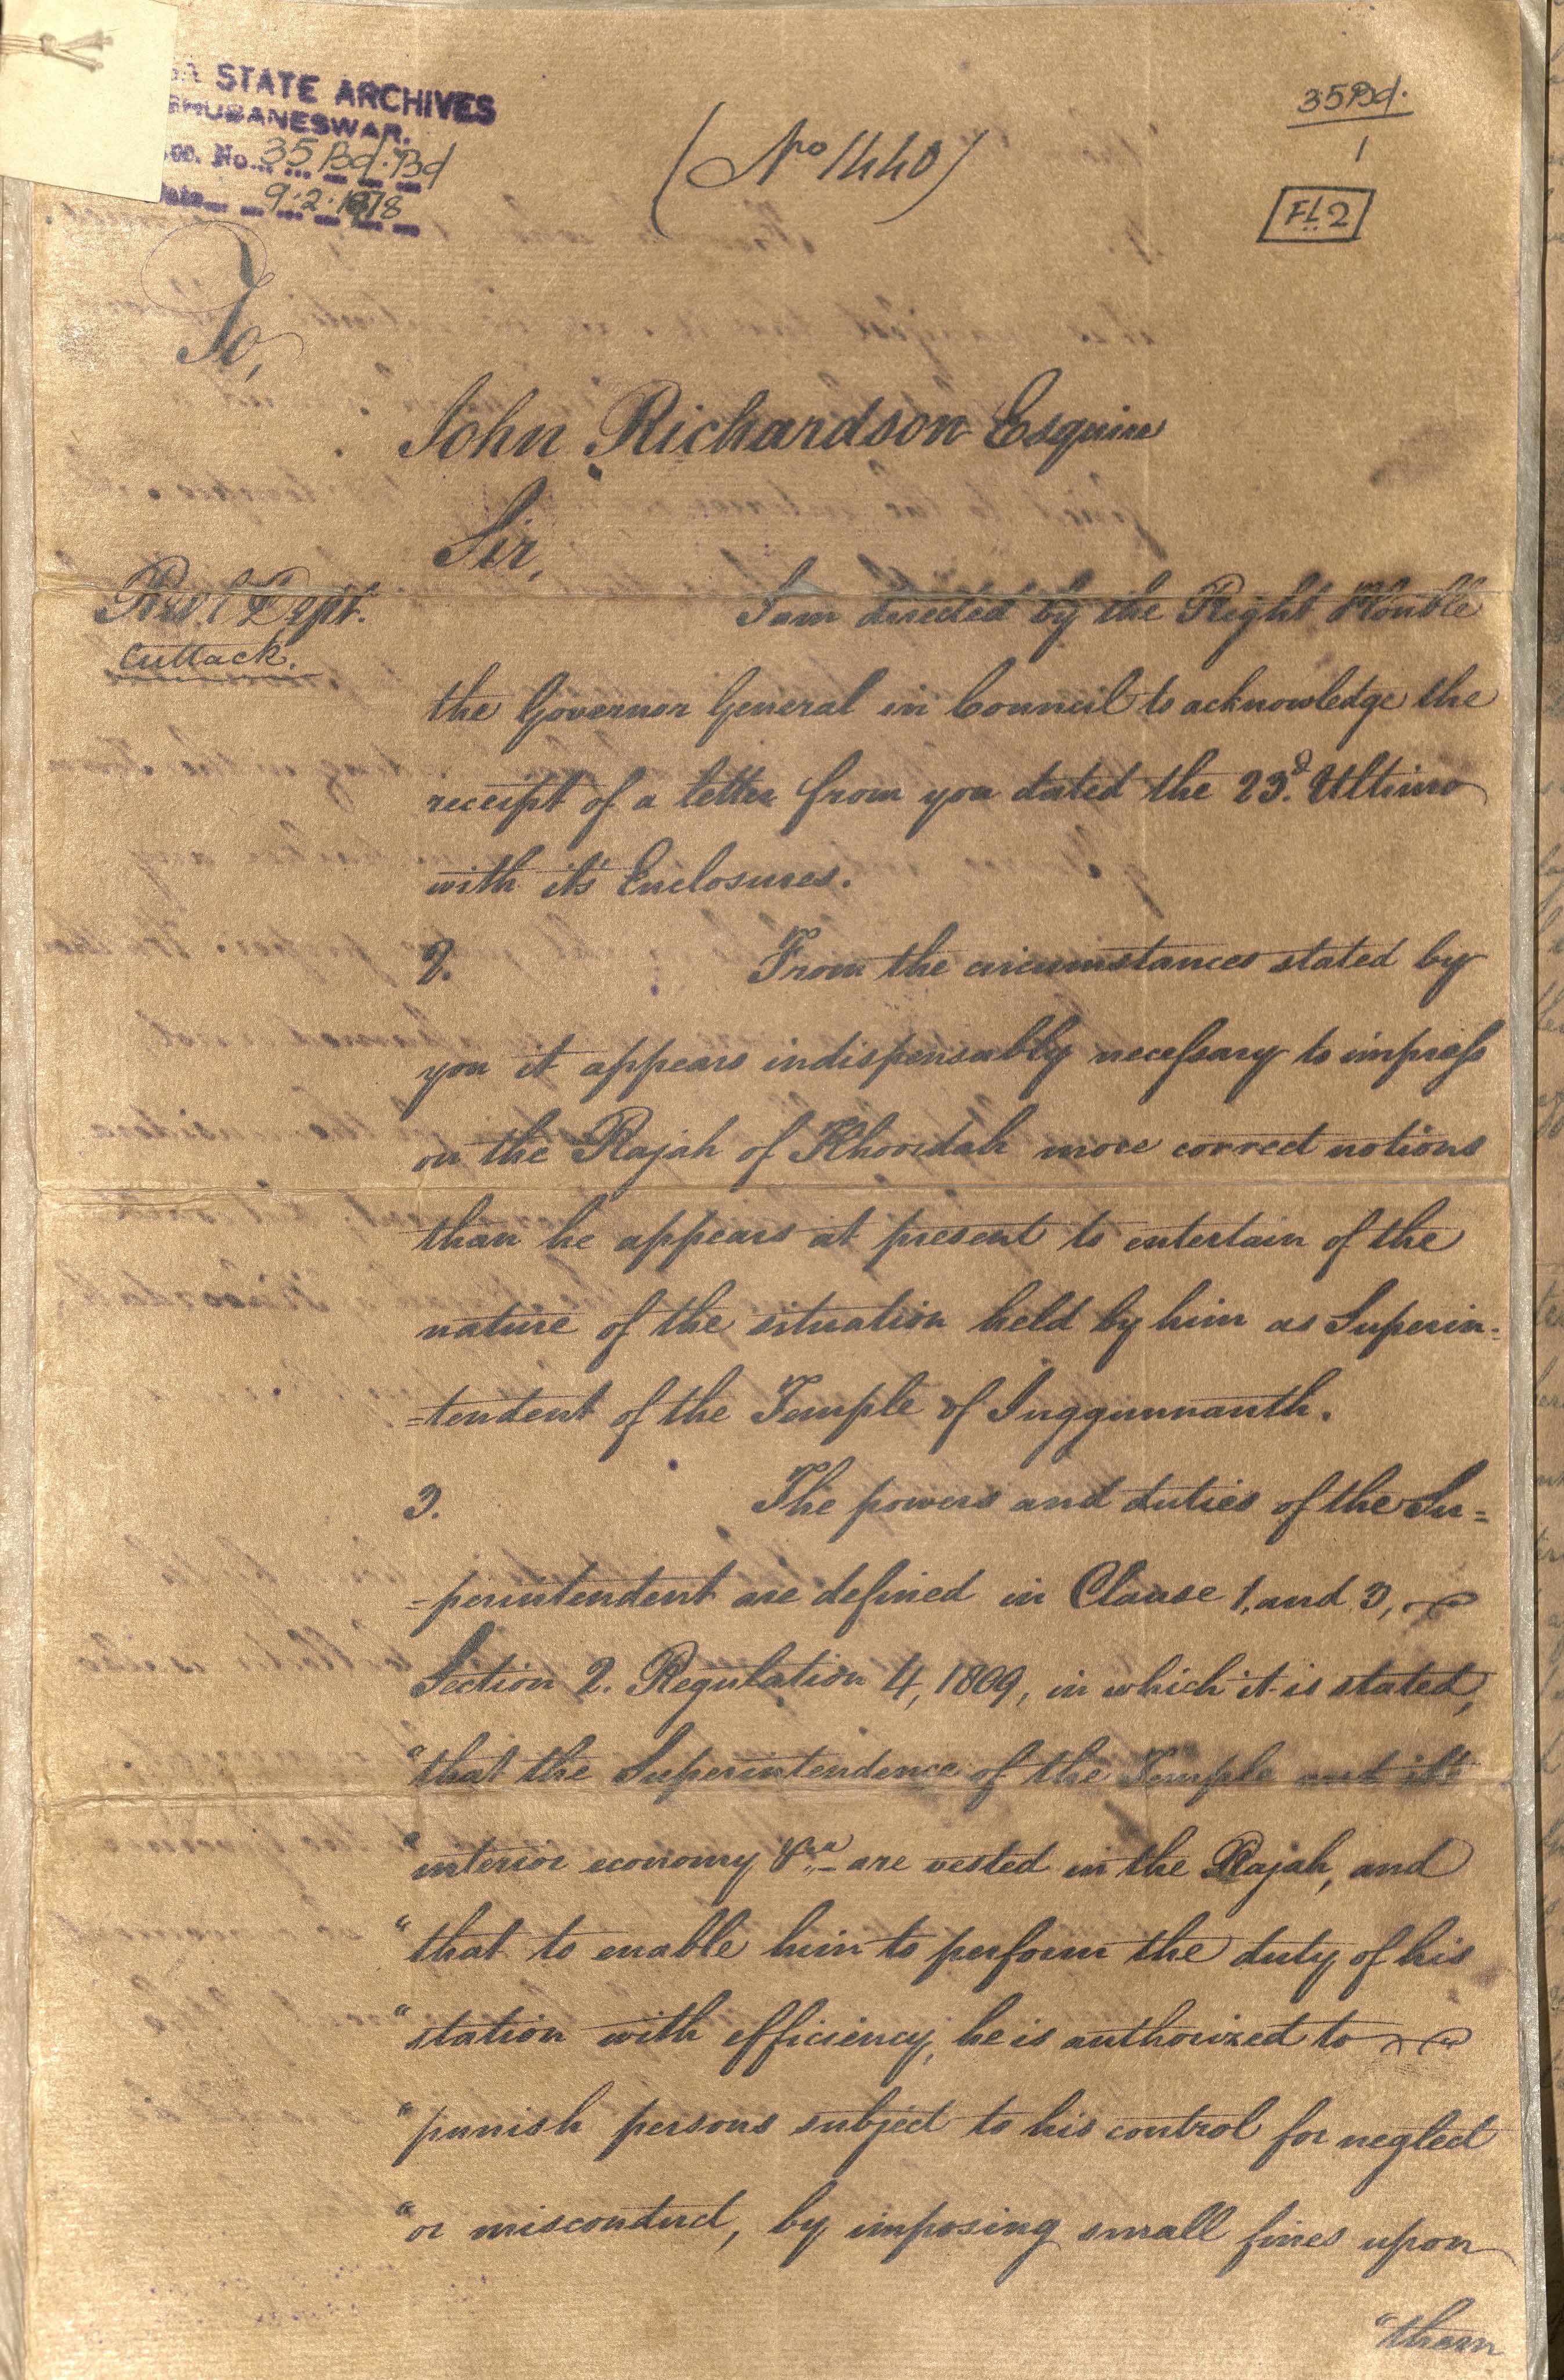 STATE ARCHIVES
BHUBANESWAR.
No. 35 Bd. Bd
Date 9.2.1878
35Bd.
1
Fl. 2
(No 1440)
To,
John Richardson Esquire
Sir,
Revl. Dept.
Cuttack.
I am directed by the Right Honble
the Governor General in Council to acknowledge the
receipt of a letter from you dated the 23d. Ultimo
with it's Enclosures.
2. From the circumstances stated by
you it appears indispensably necessary to impress
on the Rajah of Khoordah more correct notions
than he appears at present to entertain of the
nature of the situation held by him as Superin=
=tendent of the Temple of Juggunnauth.
3. The powers and duties of the Su=
=perintendent are defined in Clause 1, and 3,
Section 2. Regulation 4, 1809, in which it is stated,
"that the Superintendence of the Temple and it's
"interior economy &ca. are vested in the Rajah, and
"that to enable him to perform the duty of his
"station with efficiency, he is authorized to
"punish persons subject to his control for neglect
"or misconduct, by imposing small fines upon
"them